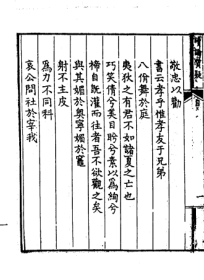 敬忠以勸
書云孝乎惟孝友于兄弟
八佾舞於庭
夷狄之有君不如諸夏之亡也
巧笑倩兮美目盼兮素以為絢兮
禘自既灌而往者吾不欲觀之矣
與其媚於奧寧媚於竈
射不主皮
為力不同科
哀公問社於宰我